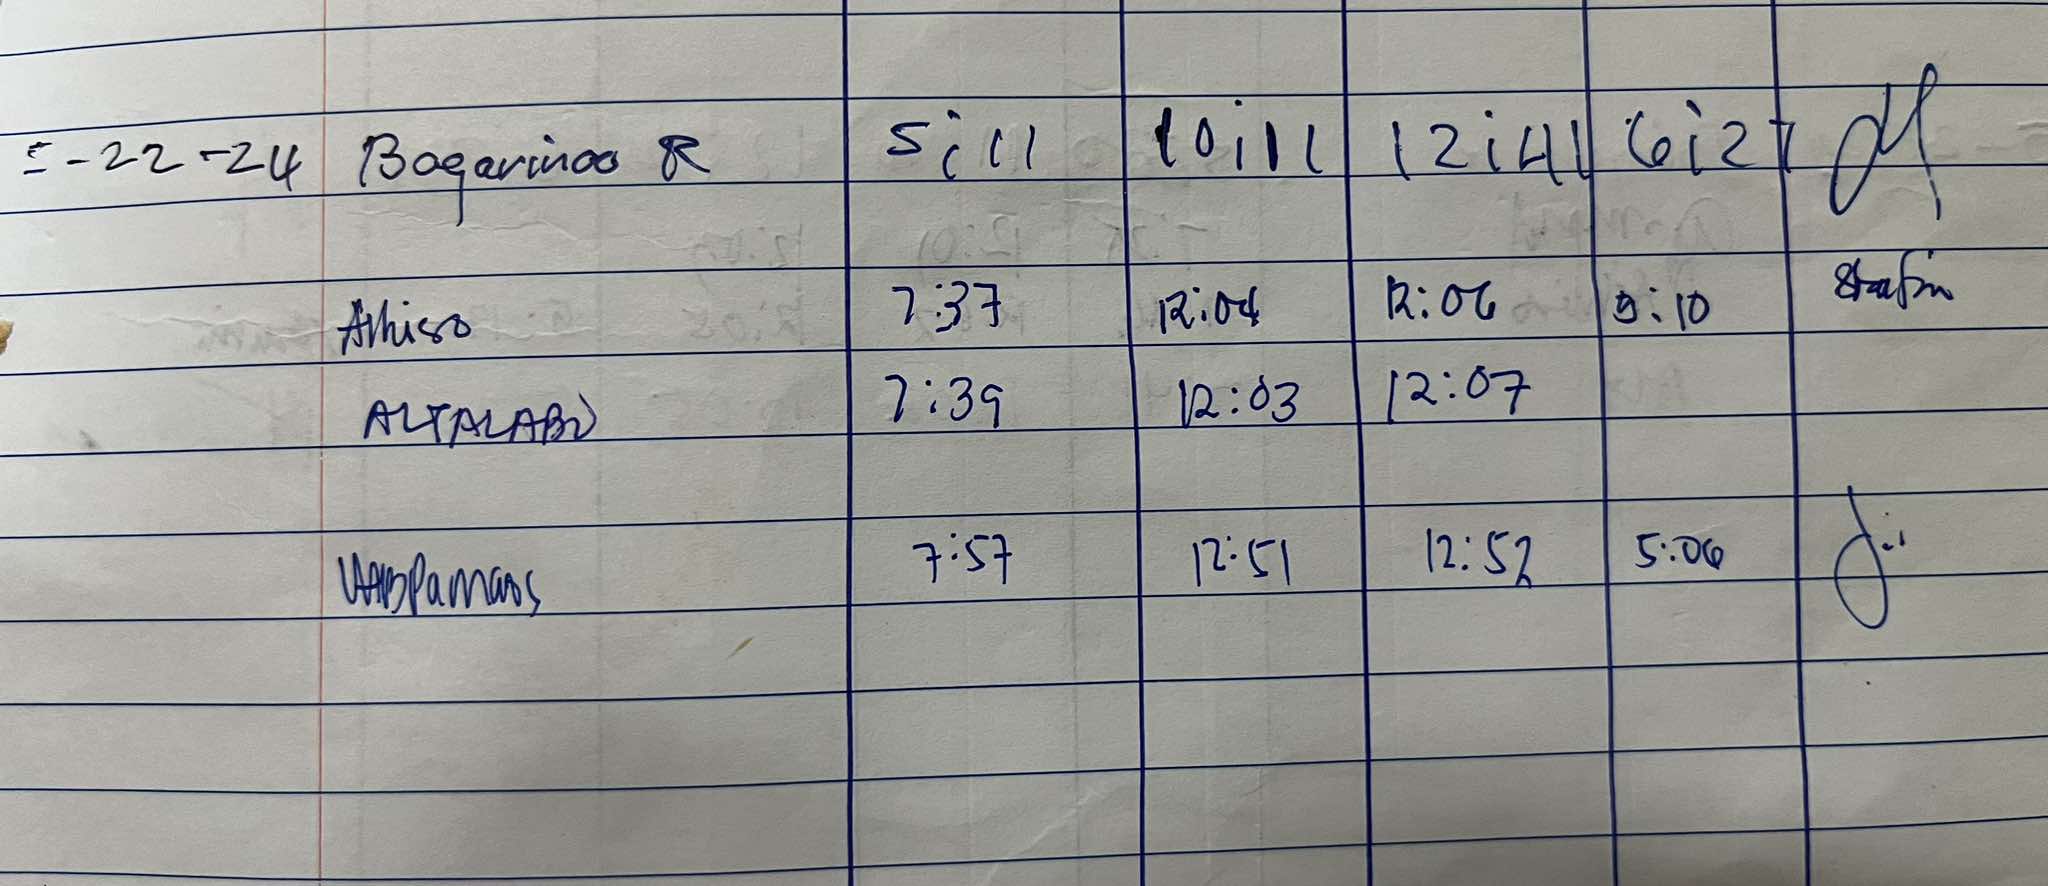 -22-24 Bagarinao R 5:11 10:11 12:41 6:27
Alhiso 7:37 12:04 12:06 5:10
ALTALABO 7:39 12:03 12:07
7:57 12:51 12:52 5:06